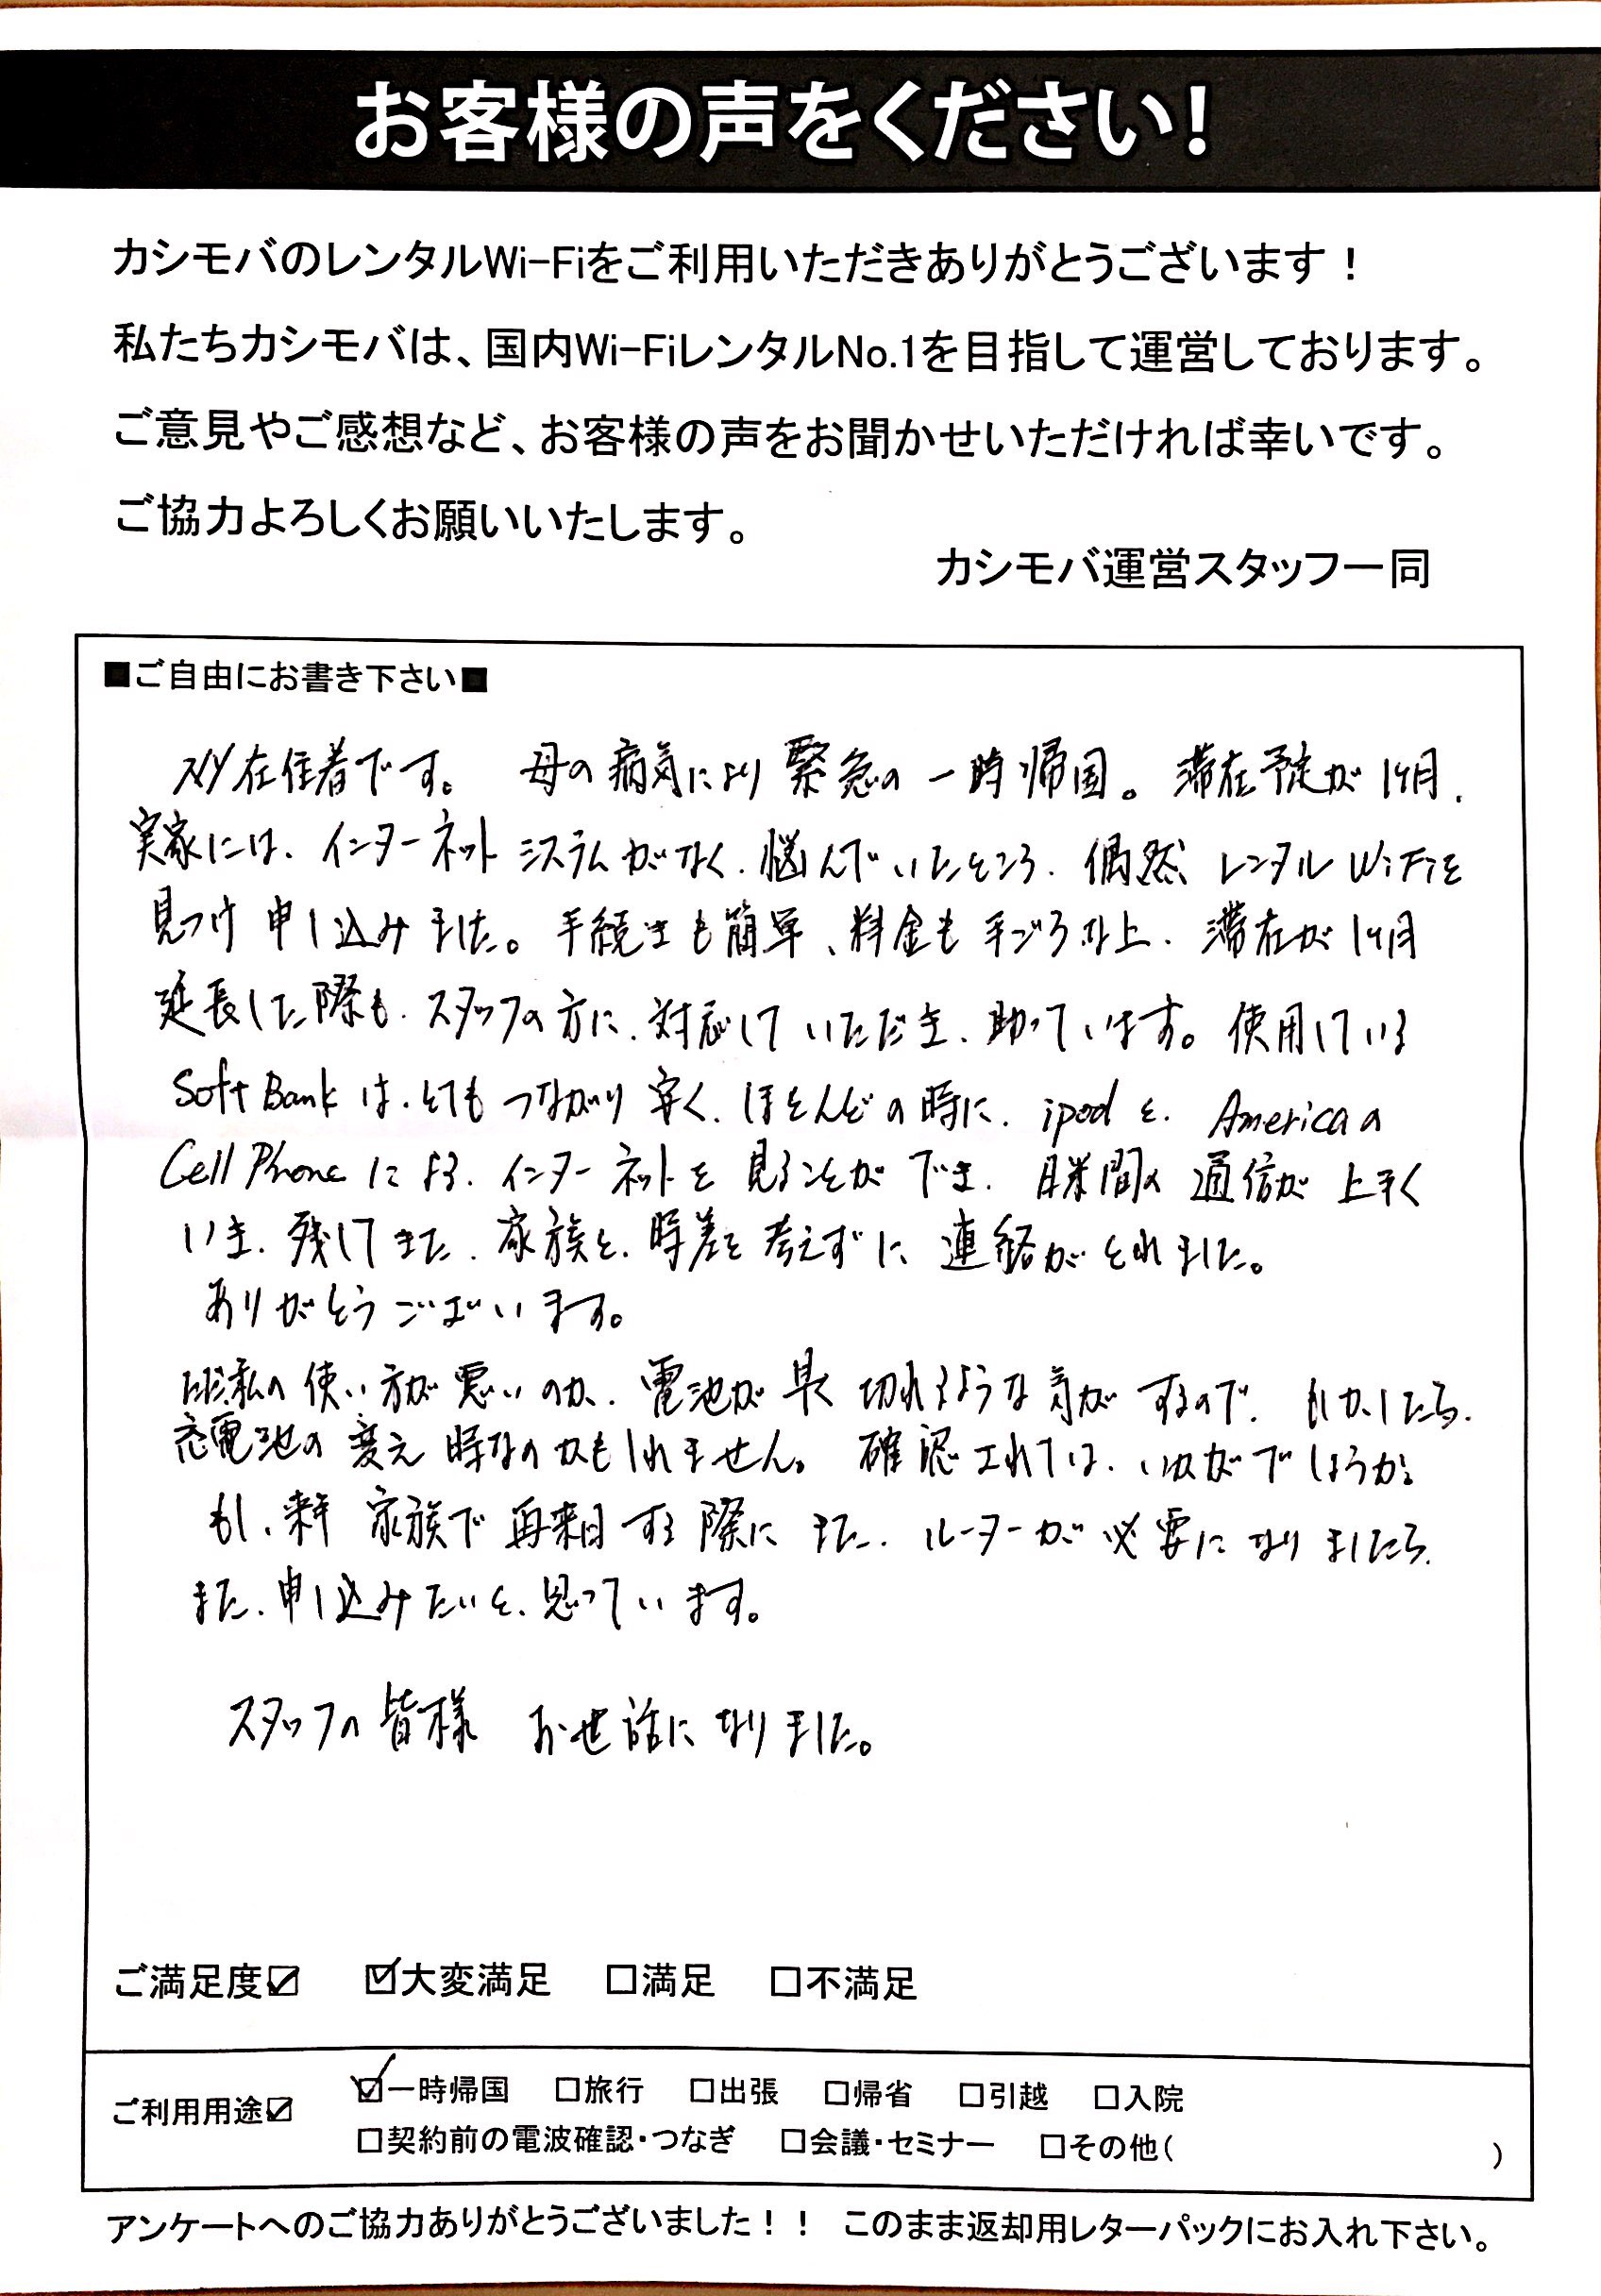 お客様の声をください！
カシモバのレンタルWi-Fiをご利用いただきありがとうございます！
私たちカシモバは、国内Wi-FiレンタルNo.1を目指して運営しております。
ご意見やご感想など、お客様の声をお聞かせいただければ幸いです。
ご協力よろしくお願いいたします。
カシモバ運営スタッフ一同
■ご自由にお書き下さい■
在住者です。 母の病気により緊急の一時帰国。滞在予定が1ヶ月、
実家には、インターネットシステムがなく、悩んでいたところ、偶然 レンタルWiFiを
見つけ申し込みました。手続きも簡単、料金も手ごろな上、滞在が1ヶ月
延長した際も、スタッフの方に、対応していただき、助っています。使用している
SoftBankは、とてもつながり安く、ほとんどの時に、ipodと、Americaの
Cell Phoneによる、インターネットを見ることができ、日米間の通信が上手く
いき、残してきた、家族と、時差を考えずに連絡がとれました。
ありがとうございます。
ただ私の使い方が悪いのか、電池が早く切れるような気がするので、もしかしたら、
充電池の変え時なのかもしれません。確認されては、いかがでしょうか。
もし、来年家族で再来日する際にまた、ルーターが必要になりましたら、
また、申し込みたいと、思っています。
スタッフの皆様 お世話になりました。
ご満足度☑ ☑大変満足 □満足 □不満足
ご利用用途☑ ☑一時帰国 □旅行 □出張 □帰省 □引越 □入院
□契約前の電波確認・つなぎ □会議・セミナー □その他（ ）
アンケートへのご協力ありがとうございました！！ このまま返却用レターパックにお入れ下さい。